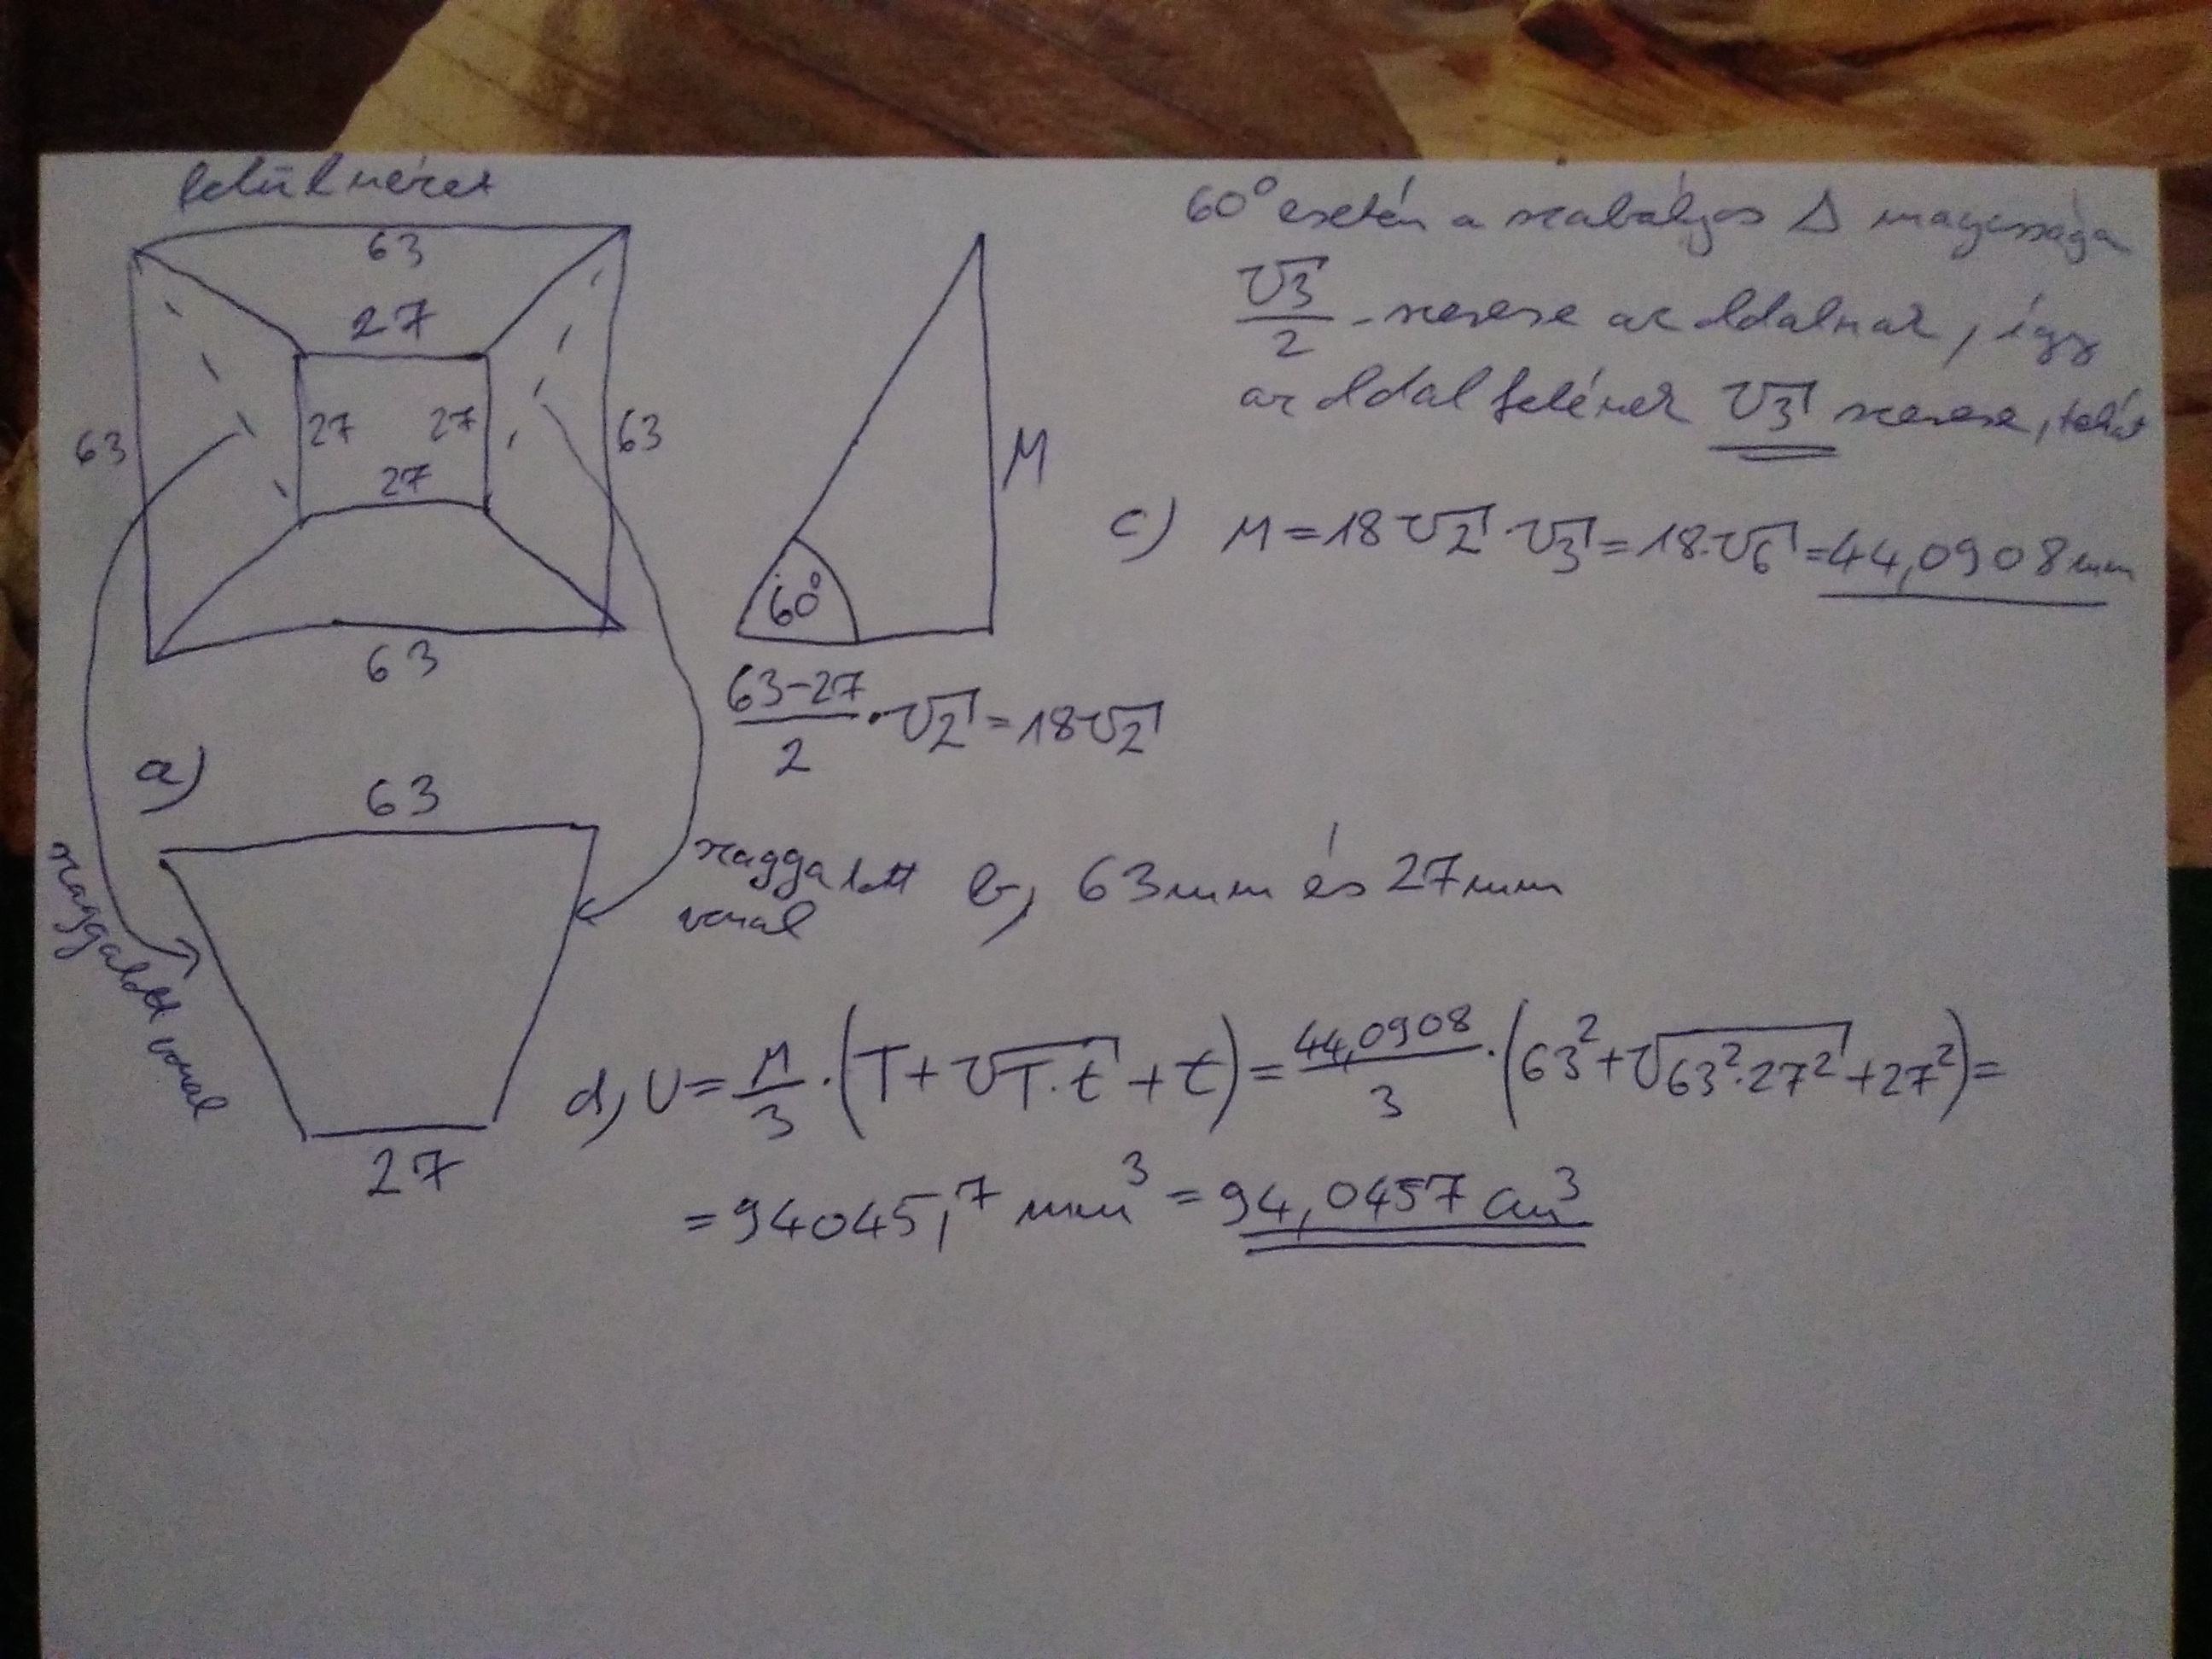 felülnézet
63
27
63
27
27
63
27
63
60°
M
63-27/2 · √2 = 18√2
60° esetén a szabályos Δ magassága
√3/2 -szerese az oldalnak, így
az oldal felének √3 szerese, tehát
c) M = 18√2 · √3 = 18·√6 = 44,0908 mm
a)
63
szaggatott vonal
szaggatott
vonal
27
b, 63mm és 27mm
d, V = M/3 · (T + √T·t + t) = 44,0908/3 · (63² + √63²·27² + 27²) =
= 94045,7 mm³ = 94,0457 cm³